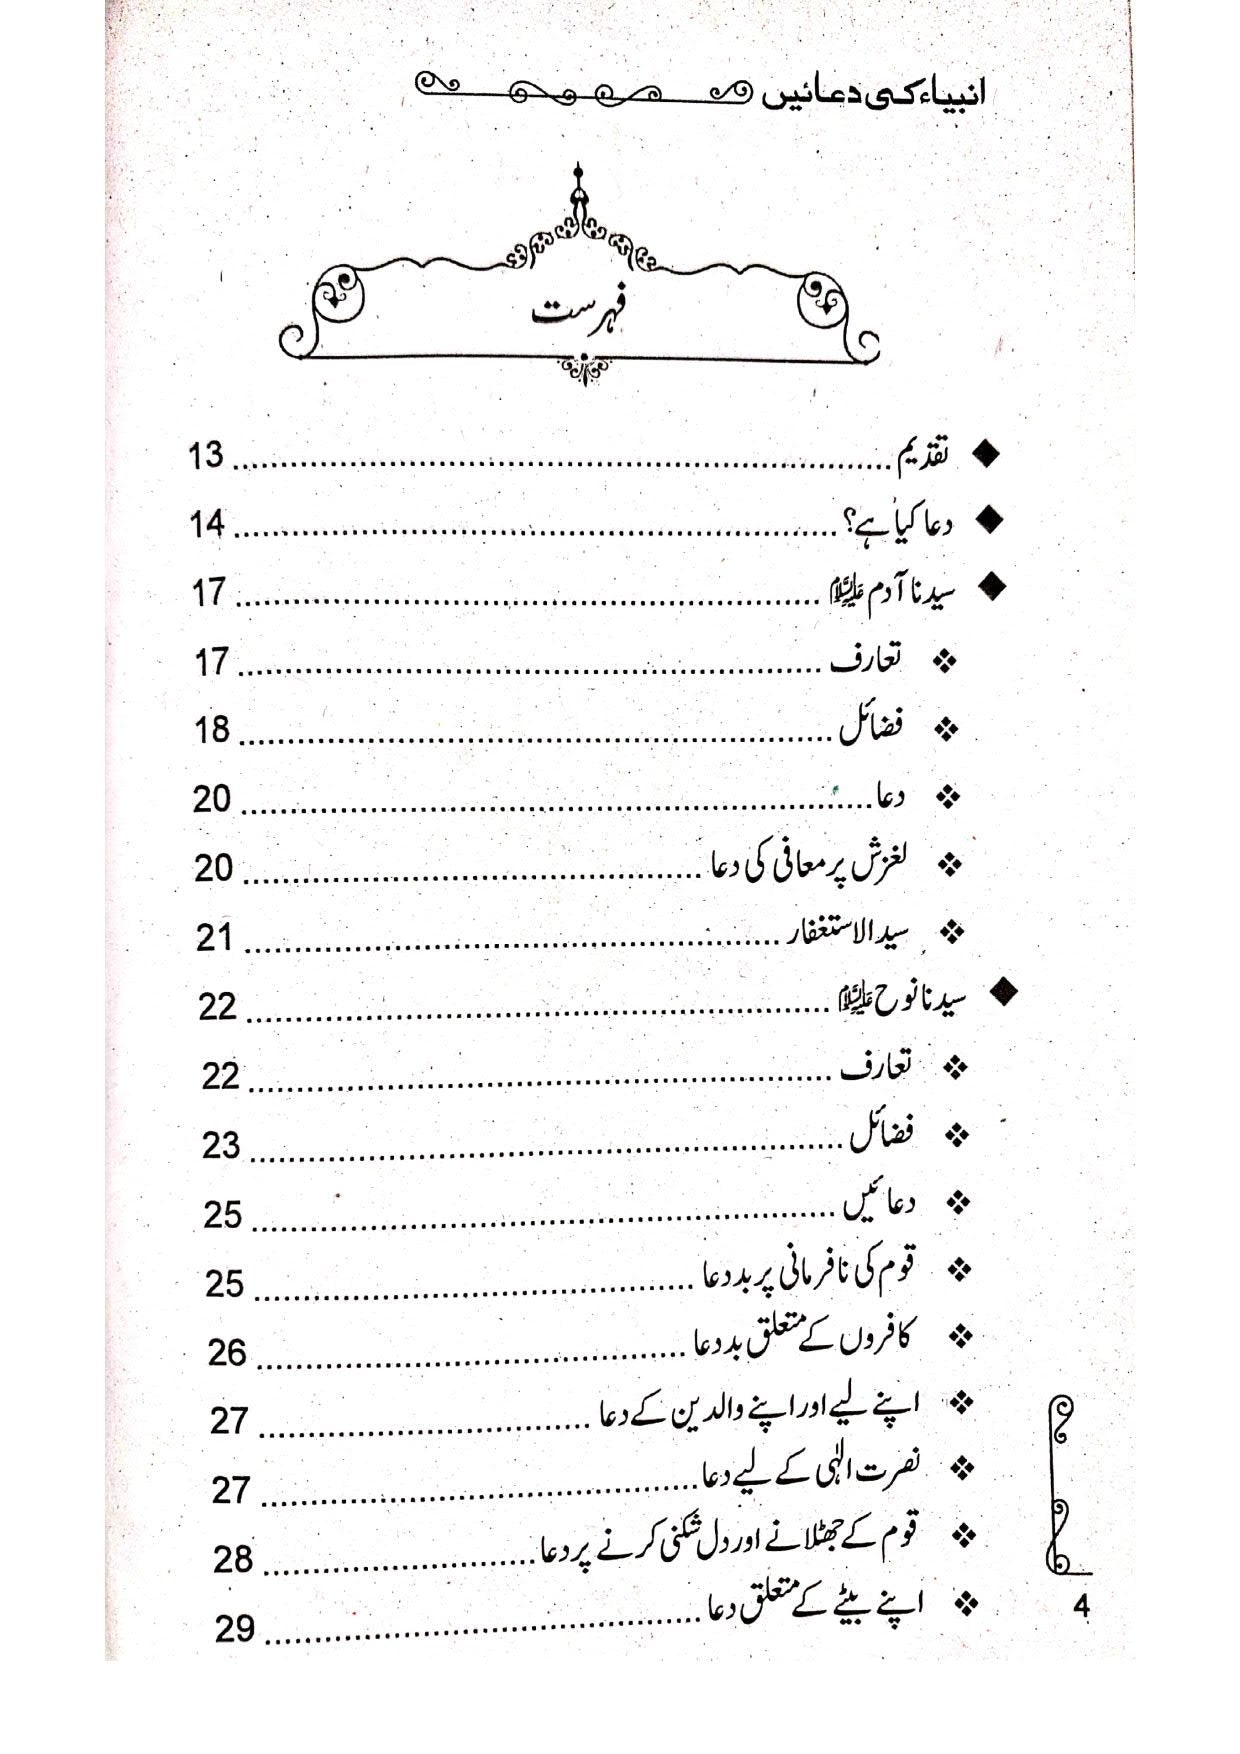 انبیاء کی دعائیں
فہرست
◆ تقدیم ........ 13
◆ دعا کیا ہے؟ ........ 14
◆ سیدنا آدم علیہ السلام ........ 17
❖ تعارف ........ 17
❖ فضائل ........ 18
❖ دعا ........ 20
❖ لغزش پر معافی کی دعا ........ 20
❖ سید الاستغفار ........ 21
◆ سیدنا نوح علیہ السلام ........ 22
❖ تعارف ........ 22
❖ فضائل ........ 23
❖ دعائیں ........ 25
❖ قوم کی نافرمانی پر بددعا ........ 25
❖ کافروں کے متعلق بددعا ........ 26
❖ اپنے لیے اور اپنے والدین کے دعا ........ 27
❖ نصرت الٰہی کے لیے دعا ........ 27
❖ قوم کے جھٹلانے اور دل شکنی کرنے پر دعا ........ 28
❖ اپنے بیٹے کے متعلق دعا ........ 29
4